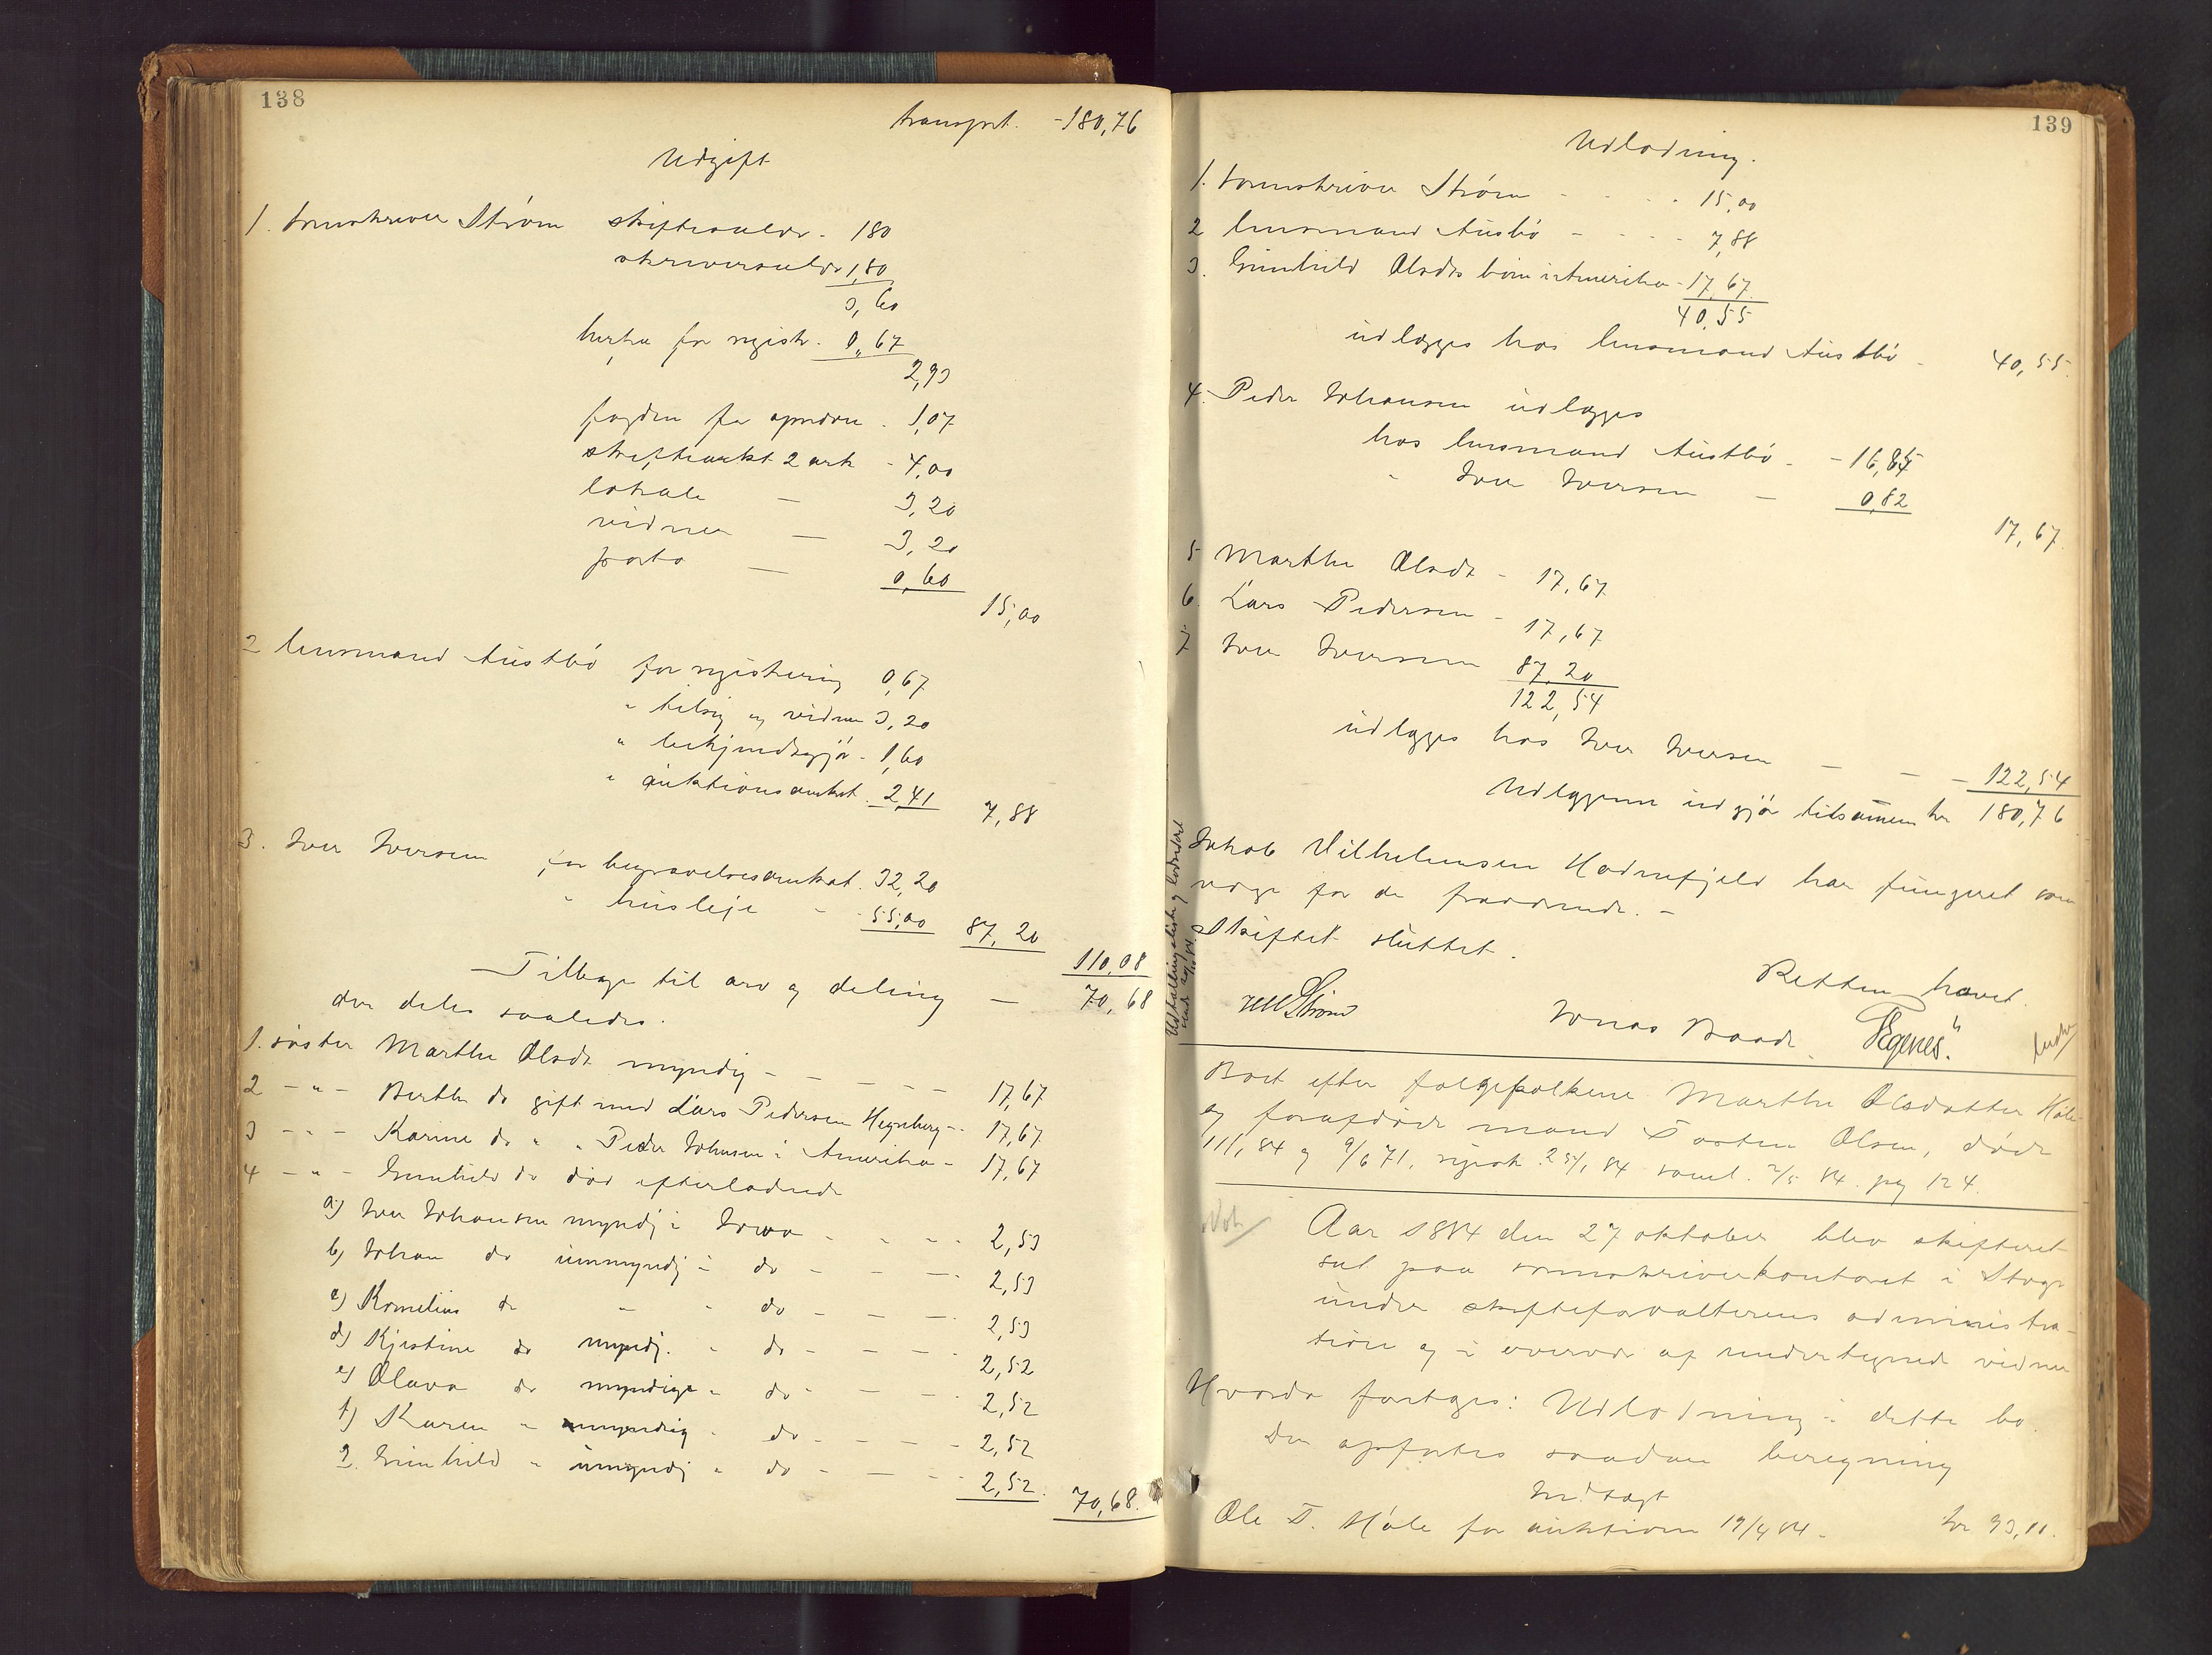 138
transport. - 180,76
Udgift
1. sorenskriver Strøm skiftesalær - 1,80
skriversalær 1,80
3,60
herfra for registr. 0,67
2,93
fogden for opredn. - 1,07
skifteakt 2 ark - 4,00
lokale — 3,20
vidner — 3,20
porto — 0,60
15,00
2 lensmand Austbø for registrering 0,67
" tilsig og vidner 3,20
" bekjendtgjør - 1,60
" auktionsomkst. 2,41 7,88
3. Iver Iversen for begravelsesomkost. 32,20
" husleje - 55,00 87,20
110,08
Tilbage til arv og deling — 70,68
der deles saaledes.
1. søster Marthe Olsdt myndig - - - - - 17,67
2 - " - Berthe do gift med Lars Pedersen - - 17,67
3 - " - Karine do " " Peder Johansen i Amerika - 17,67
4 - " - Gunhild do død efterladende
a) Iver Johansen myndig i Iowa - - - - 2,53
b) Johan do umyndig i do - - - 2,53
c) Kornelius do " " do - - - 2,53
d) Kjistine do myndig. " do - - - - 2,52
e) Olava do myndige " do - - - 2,52
f) Karen " umyndig " do - - - - 2,52
g. Gunhild " umyndig " do - - - - 2,52.
70,68.
139
Udlodning.
1. sorenskriver Strøm - - - - 15,00
2 lensmand Austbø - - - - 7,88
3. Gunhild Olsdts børn i Amerika - 17,67.
40,55
udlægges hos lensmand Austbø - 40,55.
4. Peder Johansen udlægges
hos lensmand Austbø - - 16,85
" Iver Iversen — 0,82
17,67.
5 Marthe Olsdt - 17,67
6. Lars Pedersen - 17,67
7 Iver Iversen 87,20
122,54
udlægges hos Iver Iversen — — — 122,54
Udlæggene udgjør tilsammen kr 180,76
Jakob Vilhelmsen Hodnefjeld har fungeret som
værge for de fraværende. -
Skiftet sluttet.
Retten hævet.
Strøm
Jonas Baade.
Boet efter følgefolkene Marthe Olsdatter Høle
og forafdøde mand Tosten Olsen, døde
11/1, 84 og 9/6 71, registr. 25/1 84 saml. 2/5 84. pag 124.
Aar 1884 den 27 oktober blev skifteret
sat paa sorenskriverkontoret i
under skifteforvalterens administra-
tion og i overvær af undertegnede vidner
Hvorda foretoges: Udlodning i dette bo.
Der opførtes saadan beregning
Indtægt
Ole T. Høle for auktionen 19/4 84 - kr 93,11.